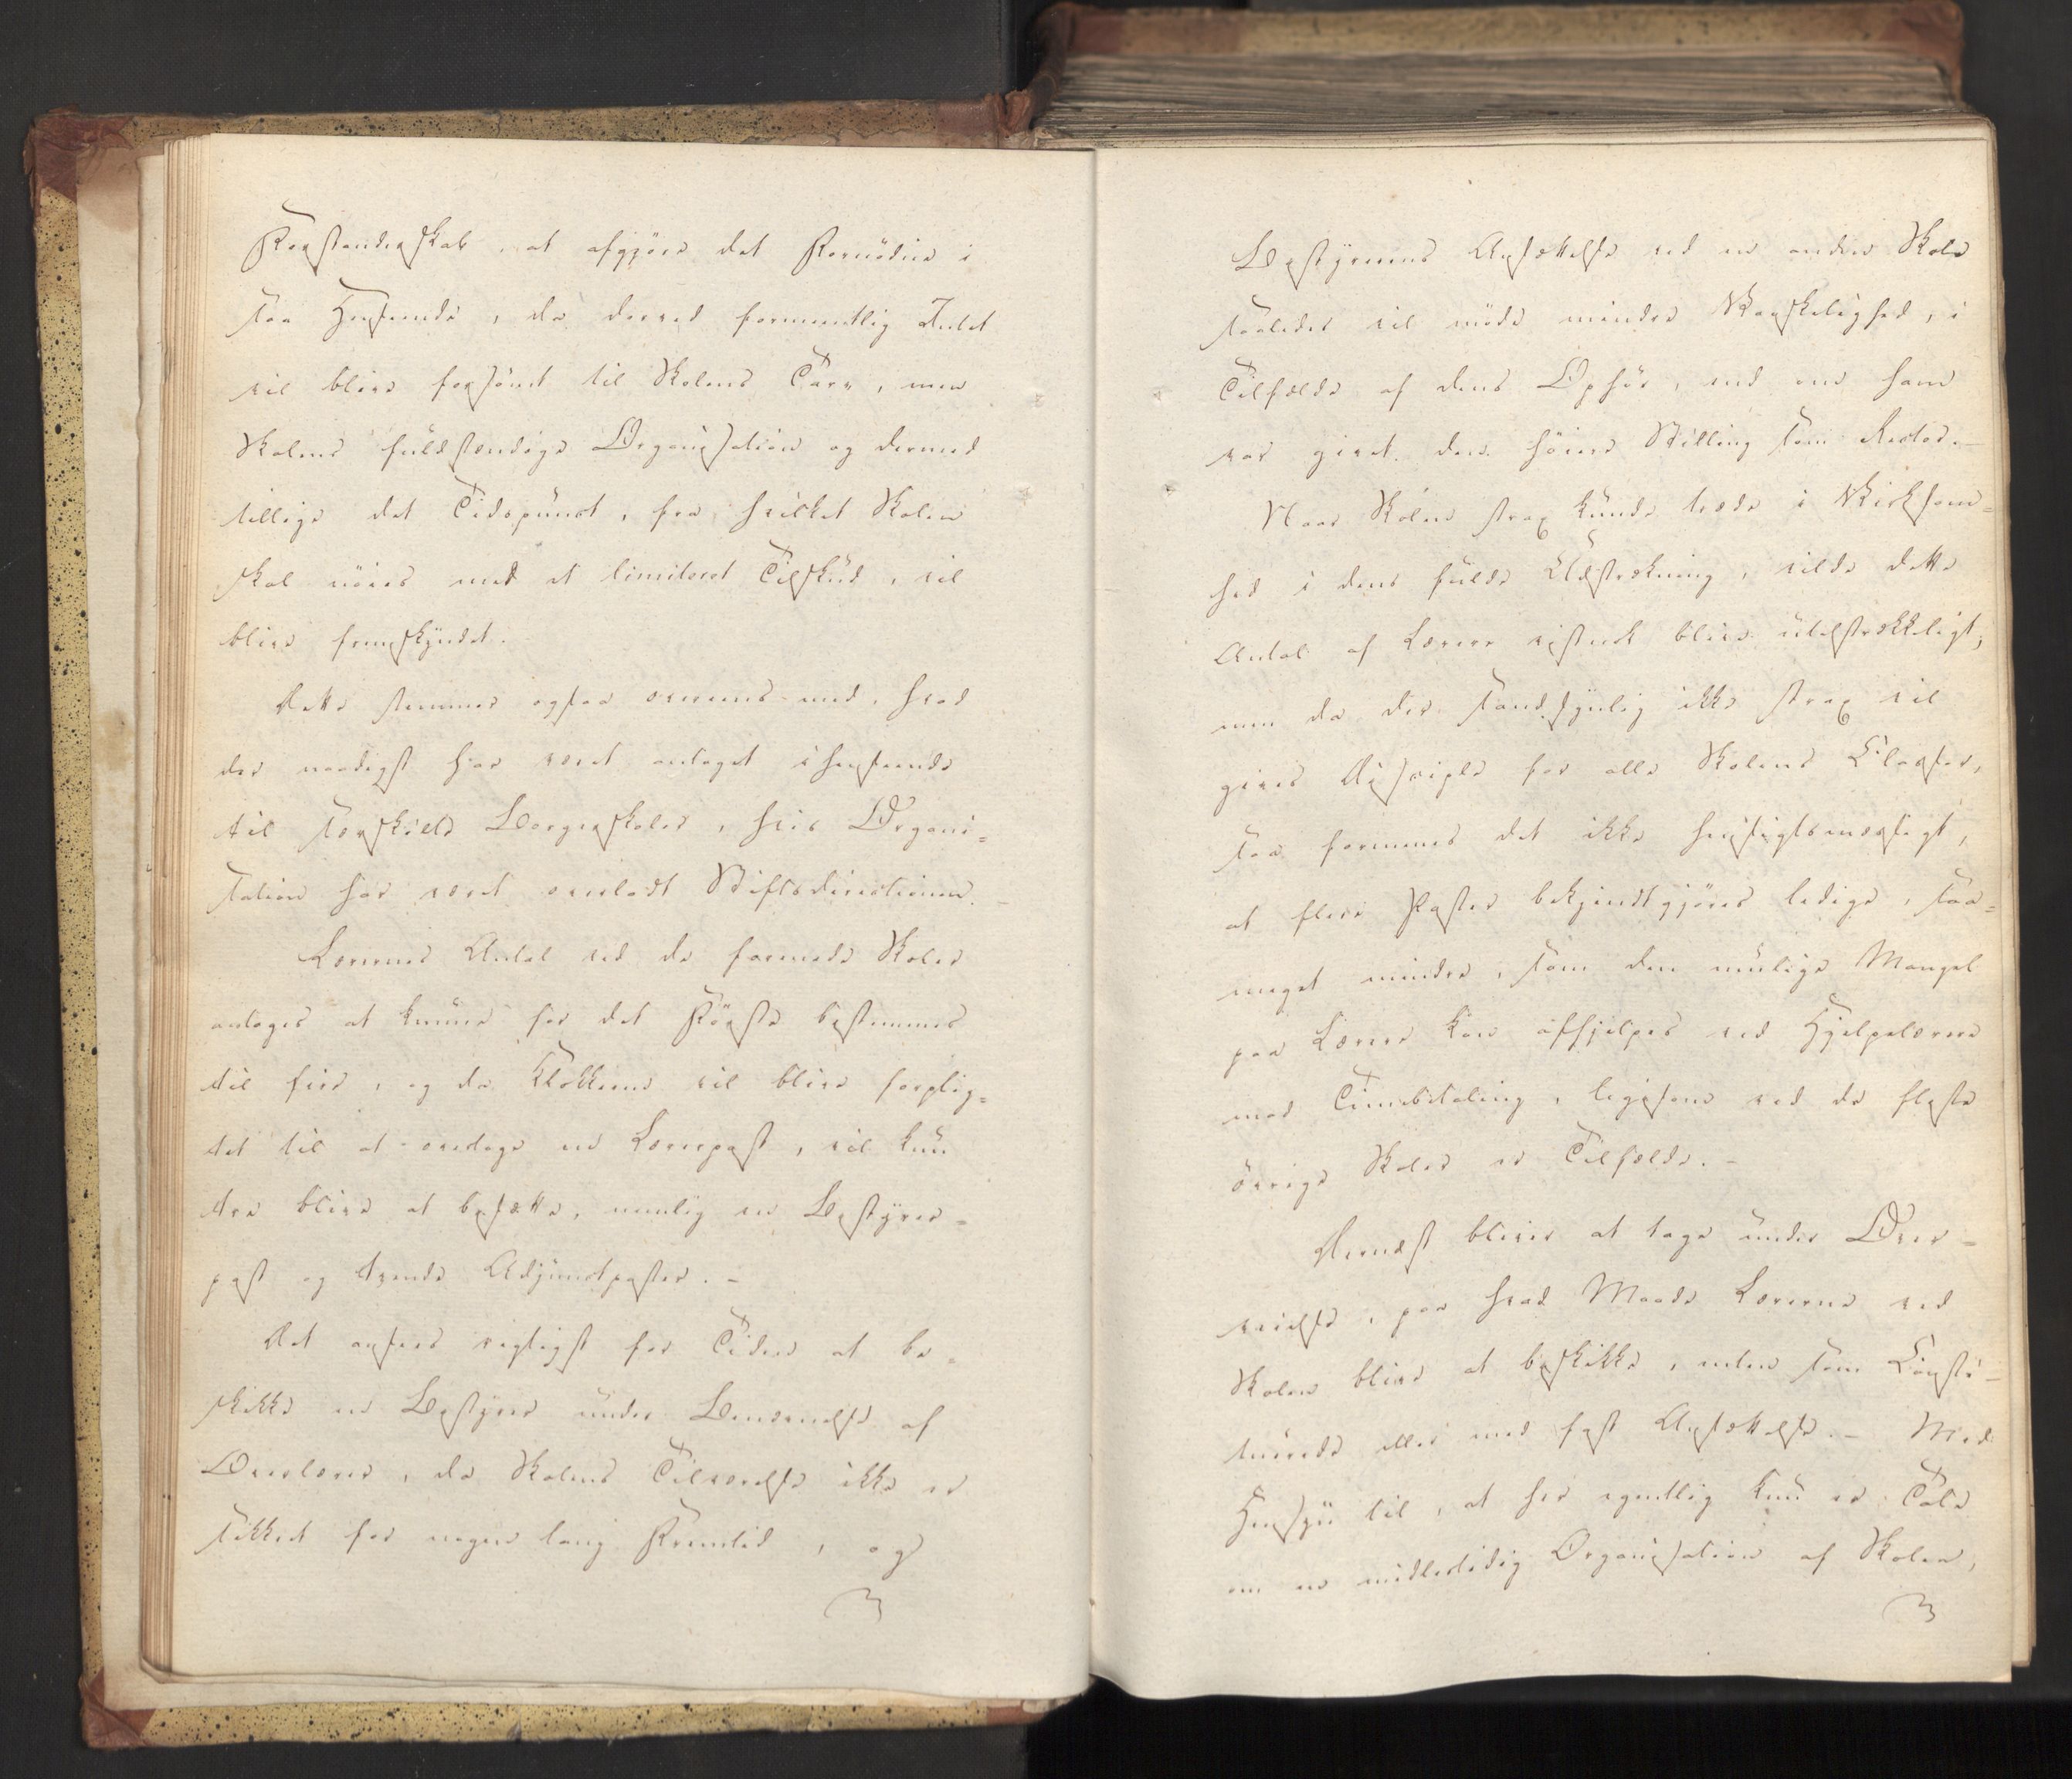 Forstanderskab, at afgjöre det Fornödne i
saa Henseende, da derved formentlig Intet
vil blive forsömt til Skolens Tarv, men
Skolens fuldstændige Organisation og dermed
tillige det Tidspunct, fra hvilket Skolen
skal nöies med et limiteret Tilskud, vil
blive fremskyndet.
Dette stemmer ogsaa overens med, hvad
der naadigst har været antaget i henseende
til særskilte Borgerskoler, hvis Organi=
sation har været overladt Stiftsdirectionen.-
Lærernes Antal ved de forenede Skoler
antages at kunne for det Förste bestemmes
til fire, og da Klokkeren vil blive forplig=
tet til at overtage en Lærerpost, vil kun
tre blive at besætte, nemlig en Bestyrer=
post og tvende Adjunctposter.-
Det ansees rigtigst for Tiden at be=
skikke en Bestyrer under Benævnelse af
Overlærer, da Skolens Tilværelse ikke er
sikkret for nogen lang Fremtid, og
Bestyrerens Ansættelse ved en anden Skole
saaledes vil möde mindre Vanskelighed, i
Tilfælde af dens Ophör, end om ham
var givet den höiere Stilling som Rector.-
Naar Skolen strax kunde træde i Virksom=
hed i dens fulde Udstrækning, vilde dette
Antal af Lærere vistnok blive utilstrækkeligt;
men da der sandsynlig ikke strax vil
gives Disciple for alle Skolens Classer,
saa formenes det ikke hensigtsmæssigt,
at flere Poster bekjendtgjöres ledige, saa=
meget mindre, som den mulige Mangel
paa Lærere kan afhjelpes ved Hjelpelærere
mod Timebetaling, ligesom ved de fleste
övrige Skoler er Tilfælde.-
Dernæst bliver at tage under Over-
veielse, paa hvad Maade Lærerne ved
Skolen blive at beskikke, enten som Consti-
tuerede eller med fast Ansættelse.- Med
Hensyn til, at her egentlig kun er Tale
om en midlertidig Organisation af Skolen,